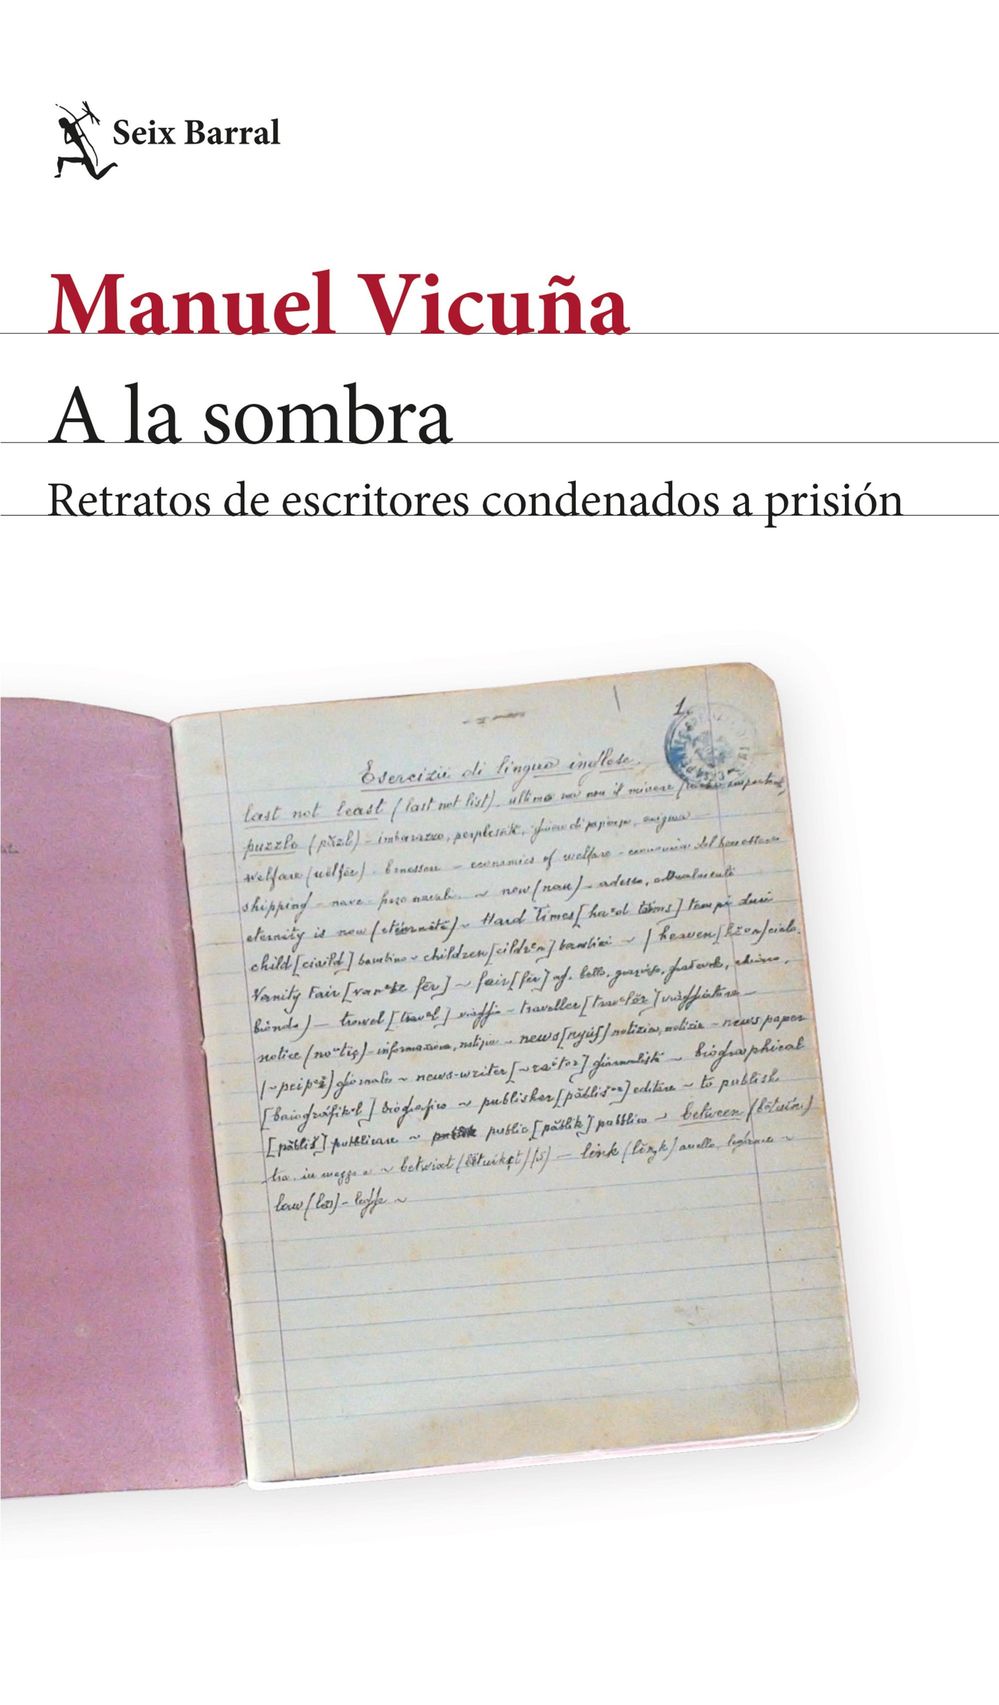 Seix Barral
Manuel Vicuña
A la sombra
Retratos de escritores condenados a prisión
1.
Esercizii di lingua inglese.
last not least (last not list). ultimo ma non il minore
puzzle (püzl) - imbarazzo, perplessità, enigma
welfare (uelfér) benessere - economics of welfare - economia del benessere
shipping - nave - now (nau) - adesso, attualmente
eternity is now (eternità) ~ Hard Times [ha°d taims] tempi duri
child [ciaild] bambino ~ children [cildrᵉn] bambini ~ heaven cielo.
Vanity Fair fér] ~ fair [fér] ag. bello, grazioso,
biondo) — travel viaggio - traveller viaggiatore —
notice informazione, notizia ~ news [nyús] notizia, notizie - newspaper
giornale ~ news-writer giornalista ~ biographical
biografico ~ publisher editore ~ to publish
pubblicare ~ public [páblik] pubblico — between
tra, in mezzo a ~ betwixt — link anello, legame ~
law - legge ~